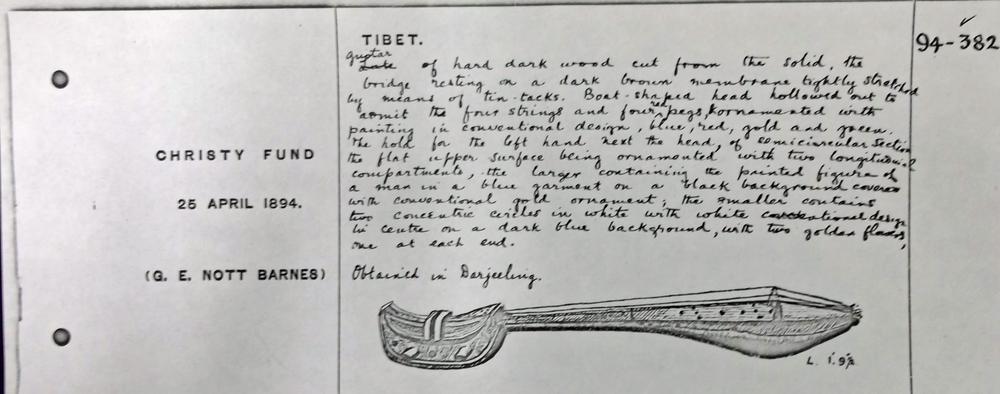 TIBET.
94-382
guitar
Lute of hard dark wood cut from the solid, the
bridge resting on a dark brown membrane tightly stretched
by means of tin-tacks. Boat-shaped head hollowed out to
admit the four strings and four red pegs, & ornamented with
painting in conventional design, blue, red, gold and green.
The hold for the left hand next the head, of semicircular section
the flat upper surface being ornamented with two longitudinal
compartments, the larger containing the painted figure of
a man in a blue garment on a black background covered
with conventional gold ornament; the smaller contains
two concentric circles in white with white conventional design
in centre on a dark blue background, with two golden flowers,
one at each end.
CHRISTY FUND
25 APRIL 1894.
(G. E. NOTT BARNES)
Obtained in Darjeeling.
L.